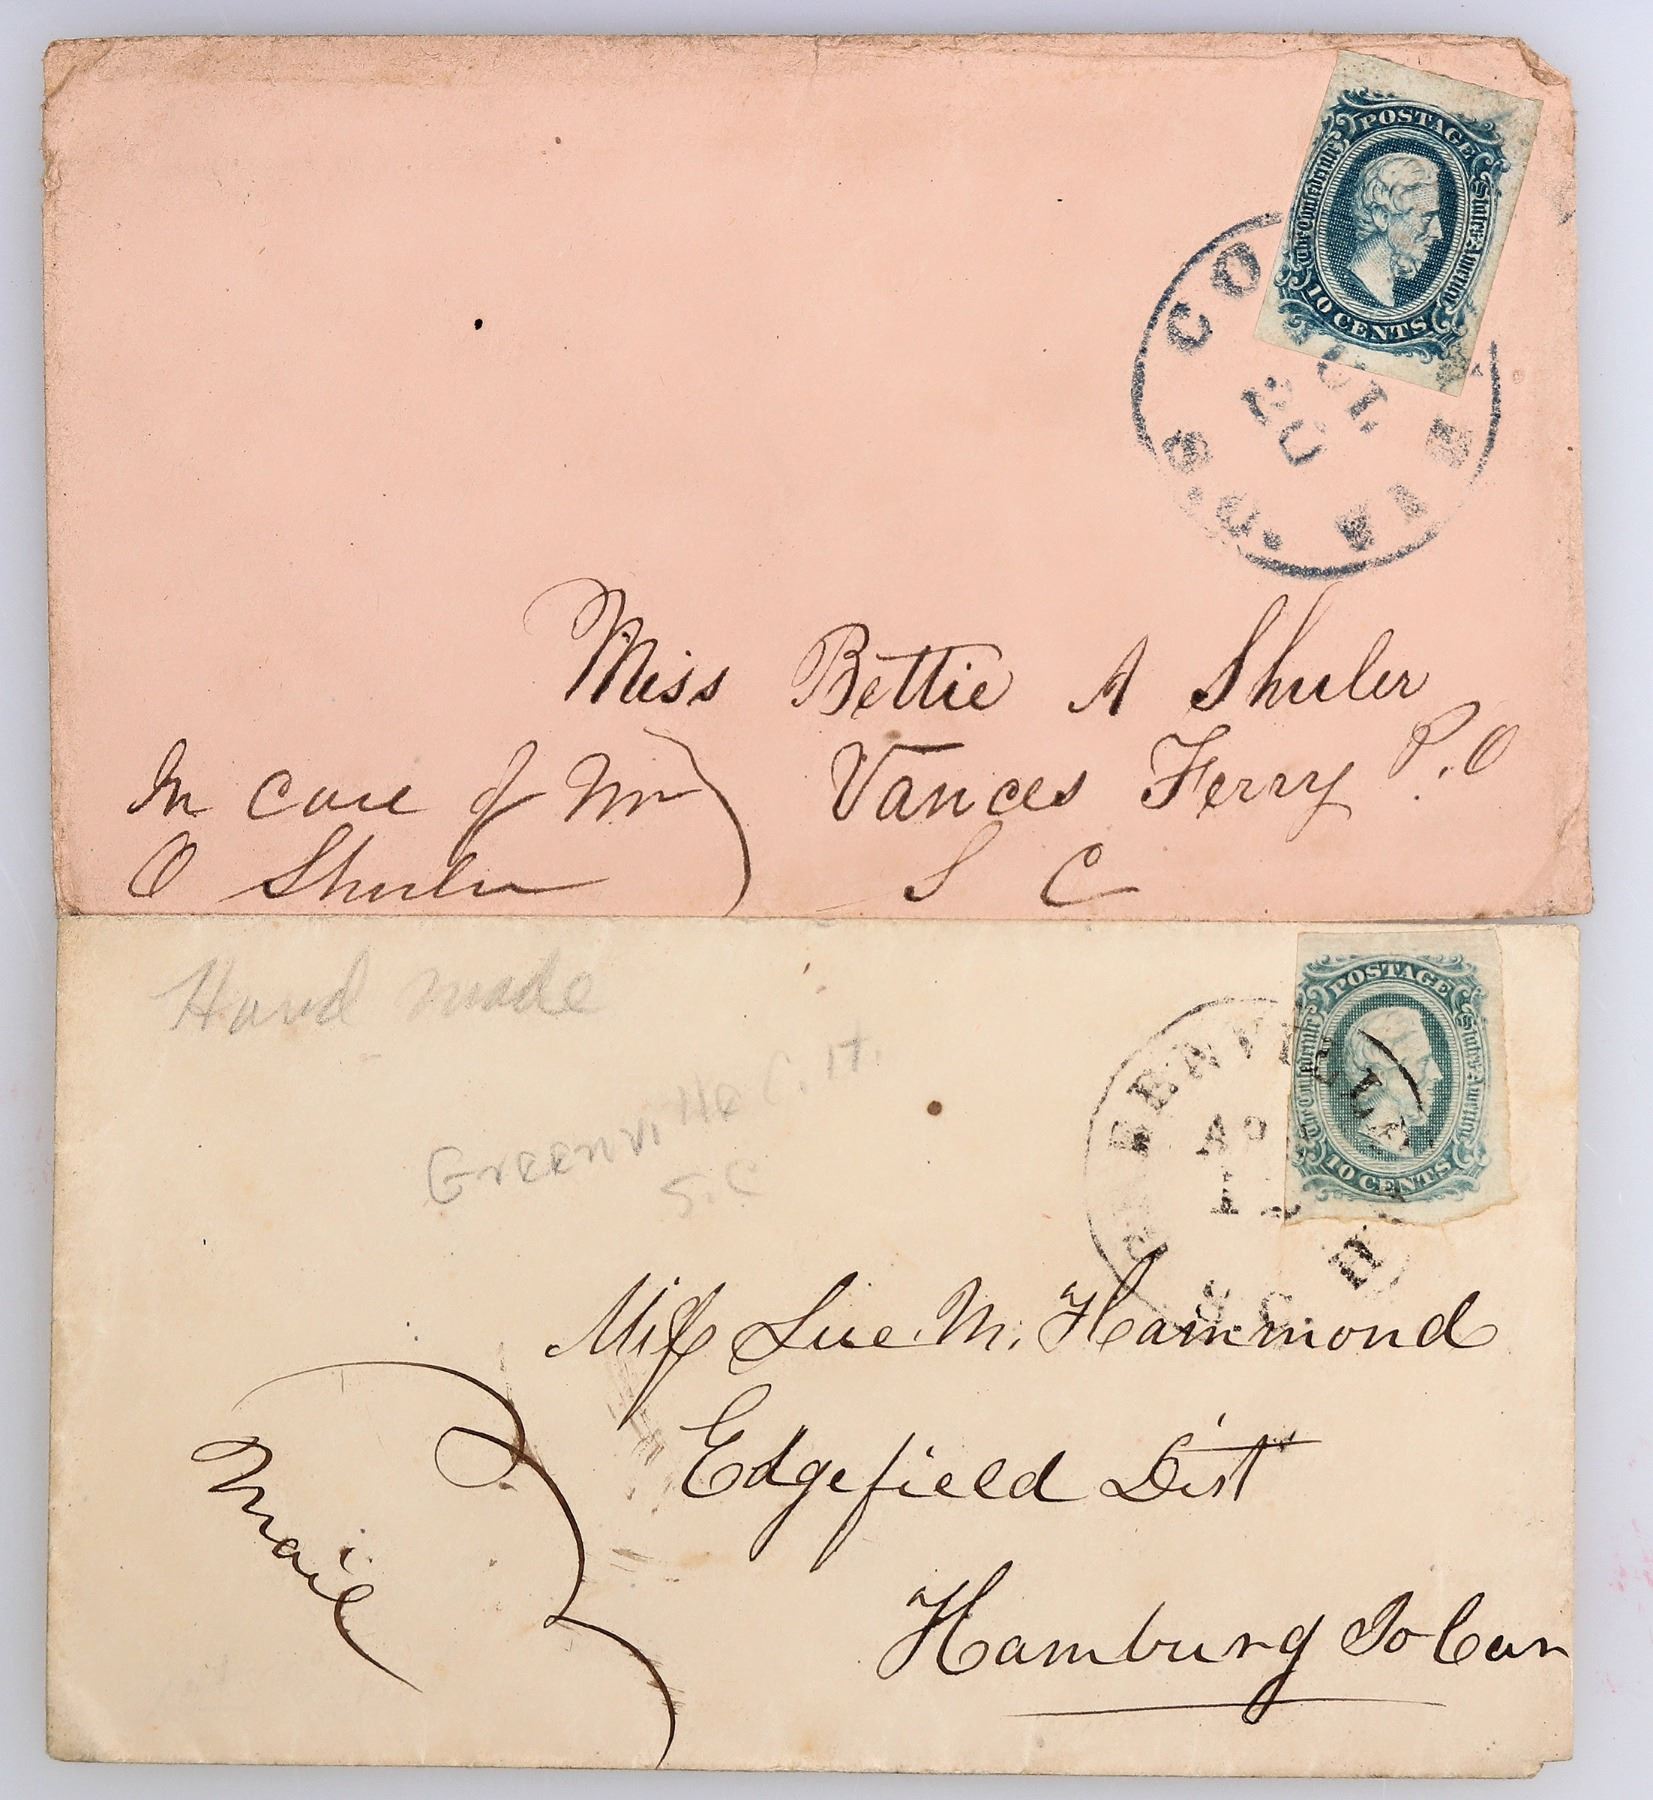 POSTAGE
The Confederate States of America
10 CENTS
CO BIA
JUL
20
S.C.
Miss Bettie A Shuler
Vances Ferry P.O
S C
In care of Mr
O Shuler
Hand made
Greenville C.H.
S.C
POSTAGE
The Confederate States of America
10 CENTS
GREENVILLE
AP
1
S.C. H
Miss Sue. M. Hammond
Edgefield Dist
Hamburg So Car
Mail